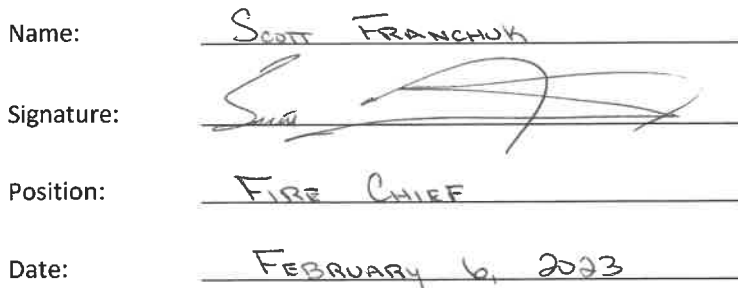 Name: Scott Franchuk
Signature: Scott
Position: Fire Chief
Date: February 6, 2023